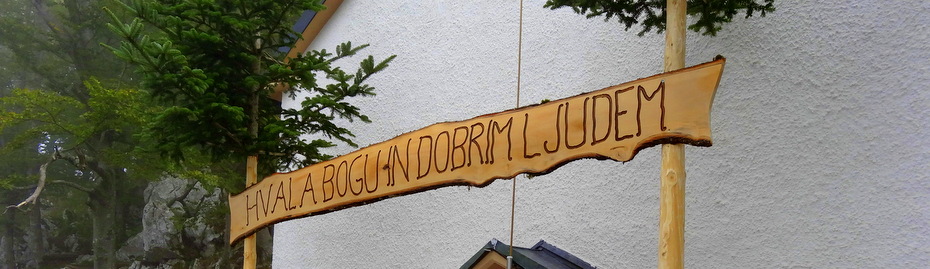 HVALA BOGU IN DOBRIM LJUDEM